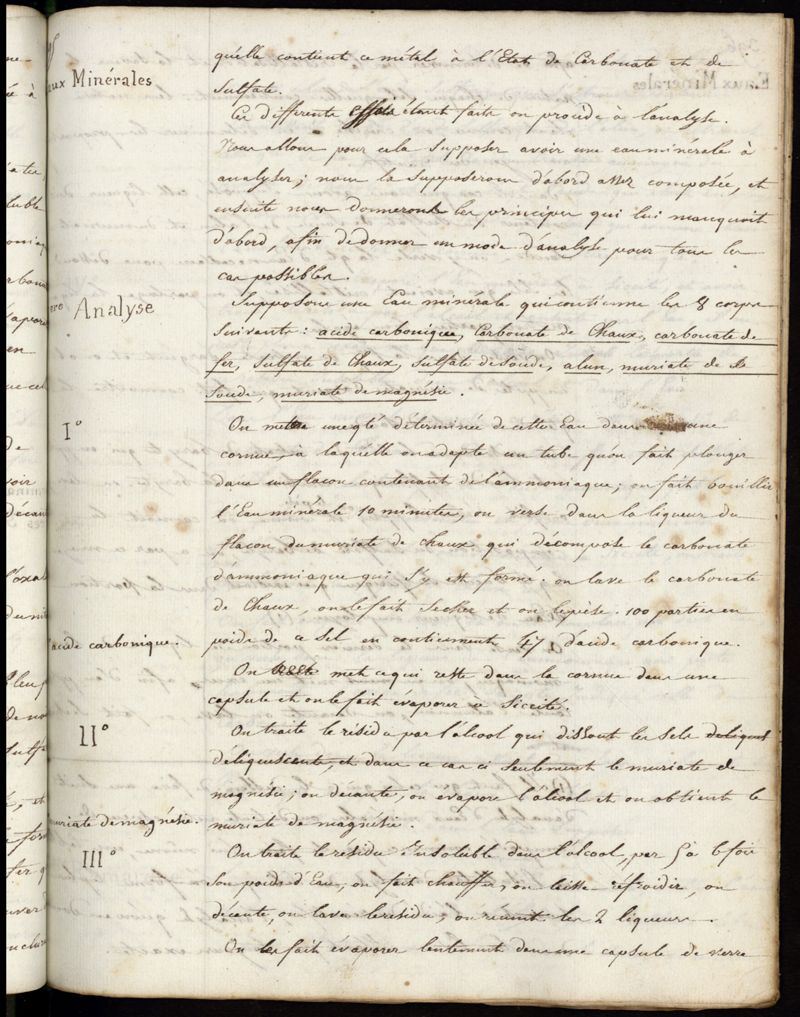 eaux Minérales
quélle contient ce métal à l'Etat de Carbonate et de
Sulfate.
Ces differents essais étant faits on procède à l'analyse.
Nous allons pour cela supposer avoir une eau minérale à
analyser; nous la supposerons d'abord assez composée, et
ensuite nous donnerons les principes qui lui manquoit
d'abord, afin de donner un mode d'analyse pour tous les
cas possibles.
Analyse
Supposons une Eau minérale qui contienne les 8 corps
Suivants: acide carbonique, Carbonate de Chaux, carbonate de
fer, Sulfate de Chaux, sulfate de soude, alun, muriate de
Soude, muriate de magnésie.
I°
On met une qté déterminée de cette Eau dans une
cornue, à laquelle on adapte un tube qu'on fait plonger
dans un flacon contenant de l'ammoniaque; on fait bouillir
l'Eau minérale 10 minutes, on verse dans la liqueur du
flacon du muriate de chaux qui décompose le carbonate
d'ammoniaque qui s'y est formé. on lave le carbonate
de Chaux, on le fait secher et on le pèse. 100 parties en
acide carbonique.
poids de ce sel en contiennent 47 d'acide carbonique.
On met ce qui reste dans la cornue dans une
capsule et on le fait évaporer à siccité.
II°
On traite le résidu par l'alcool qui dissout les sels deliques
déliquescents, et dans ce cas ci seulement le muriate de
magnésie; on décante, on évapore l'alcool et on obtient le
muriate de magnésie.
muriate de magnésie.
III°
On traite le résidu insoluble dans l'alcool, par 5 à 6 fois
son poids d'Eau, on fait chauffer, on laisse refroidir, on
décante, on lave le résidu, on réunit les 2 liqueurs.
On les fait évaporer lentement dans une capsule de verre